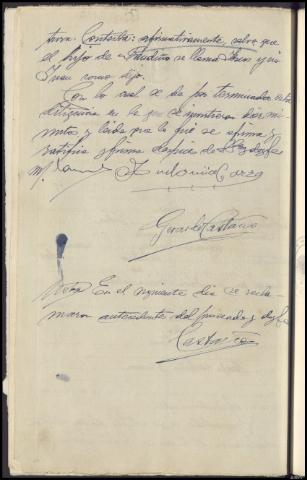 tiva. Contesta: afirmativamente, salvo que
el hijo de Faustino se llama Juan y no
como dijo.
Con lo cual se da por terminada esta
diligencia en la que se invirtieron diez mi-
nutos y leida por la que se afirma y
ratifica y firma despues de S.S. doy fe
Antonia Garza
Gerardo Castaño
En el siguiente dia se recla-
maron antecedentes del procesado, doy fe
Castaño